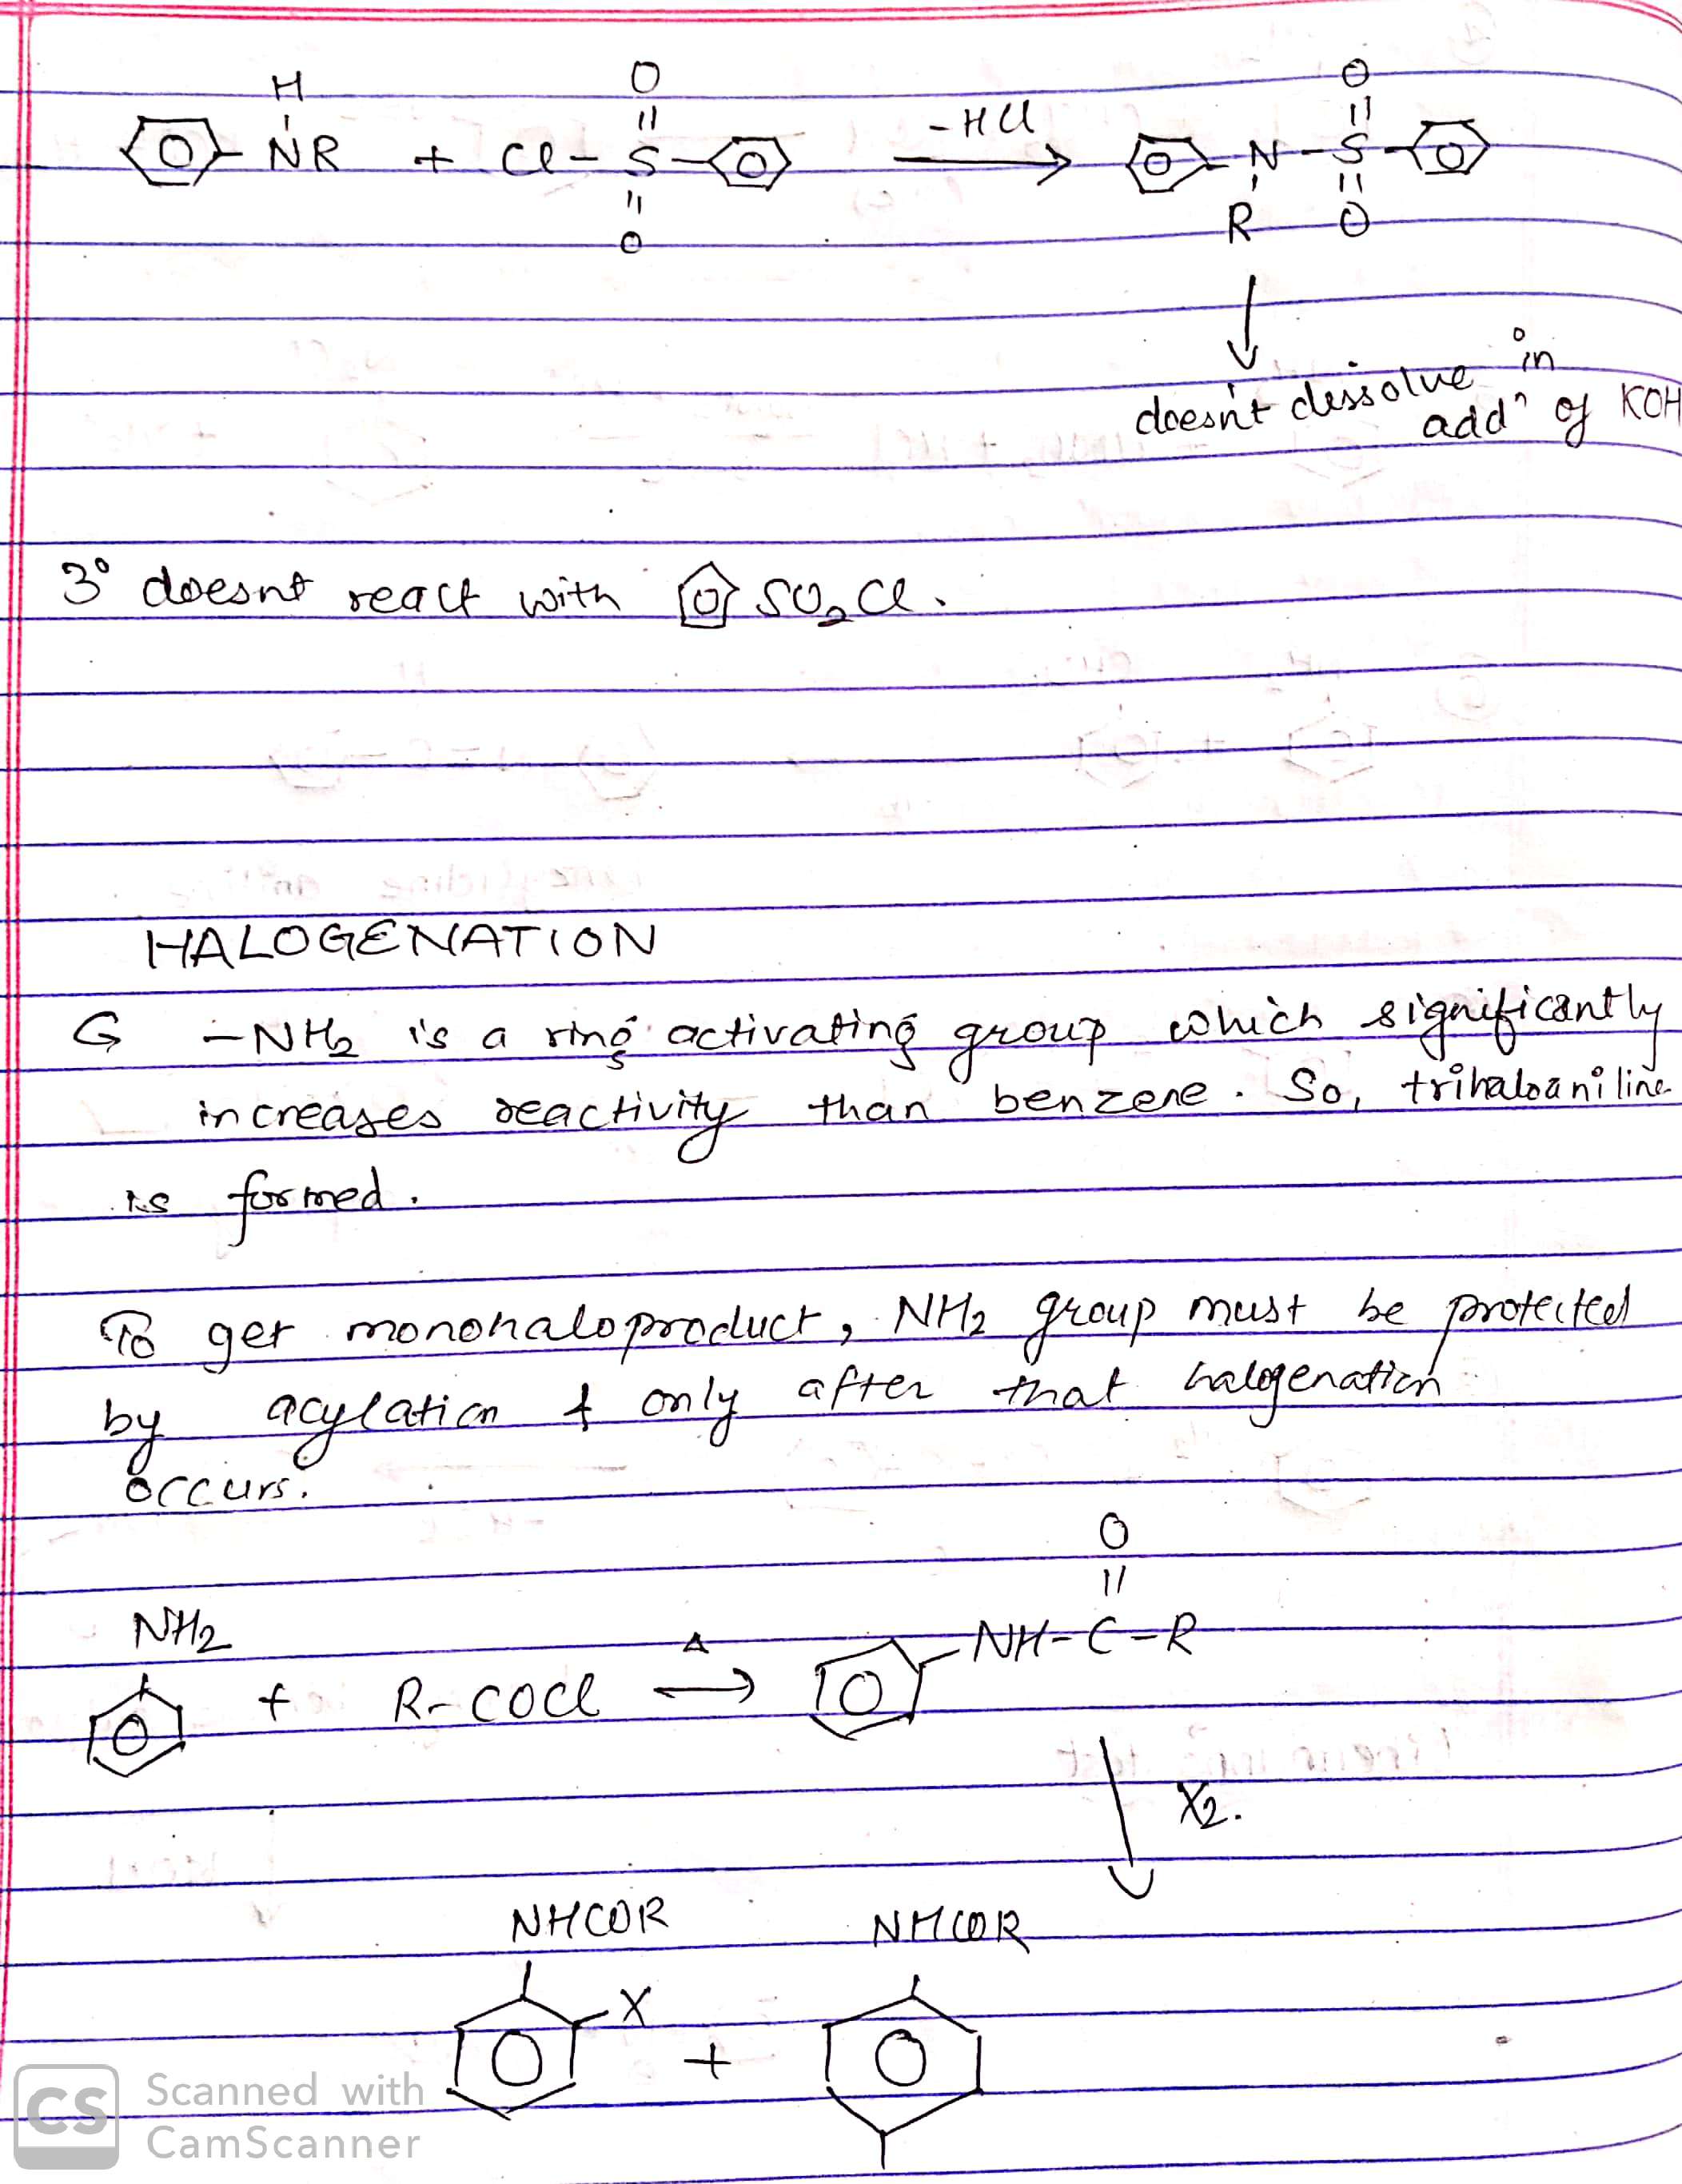 H O O
NR + Cl - S -HCl N - S
O R O
doesn't dissolve in
addⁿ of KOH
3° doesnt react with SO₂Cl.
HALOGENATION
-NH₂ is a ring activating group which significantly
increases reactivity than benzene. So, trihaloaniline
is formed.
To get monohaloproduct, NH₂ group must be protected
by acylation & only after that halogenation
occurs.
O
NH₂ Δ NH-C-R
+ R-COCl
X₂.
NHCOR NHCOR
X
+
CS Scanned with
CamScanner